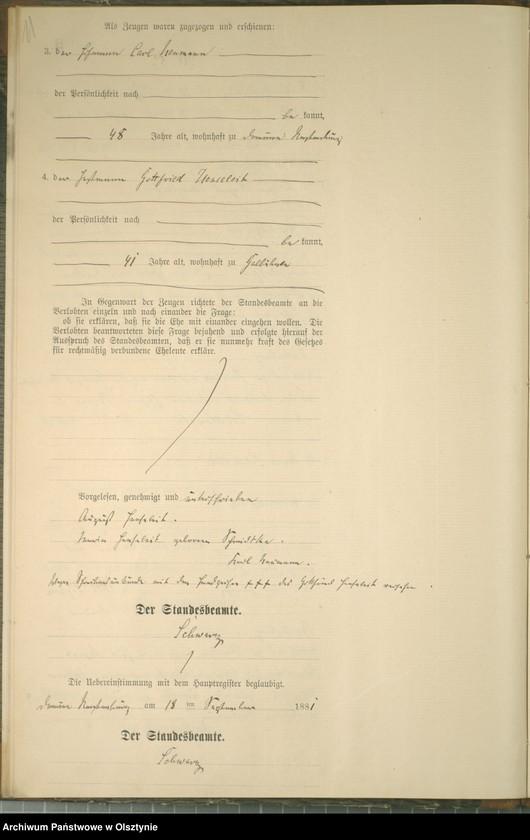 11
Als Zeugen waren zugezogen und erschienen:
3. der Carl Neumann
der Persönlichkeit nach
be kannt,
48 Jahre alt, wohnhaft zu
4. der Gottfried
der Persönlichkeit nach
be kannt,
41 Jahre alt, wohnhaft zu
In Gegenwart der Zeugen richtete der Standesbeamte an die
Verlobten einzeln und nach einander die Frage:
ob sie erklären, daß sie die Ehe mit einander eingehen wollen. Die
Verlobten beantworteten diese Frage bejahend und erfolgte hierauf der
Ausspruch des Standesbeamten, daß er sie nunmehr kraft des Gesetzes
für rechtmäßig verbundene Eheleute erkläre.
Vorgelesen, genehmigt und unterschrieben
August
geborene
Karl Neumann.
mit den Handzeichen +++ des Gottfried versehen.
Der Standesbeamte.
Schwarz
Die Uebereinstimmung mit dem Hauptregister beglaubigt.
am 18 ten September 1881
Der Standesbeamte.
Schwarz
Archiwum Państwowe w Olsztynie